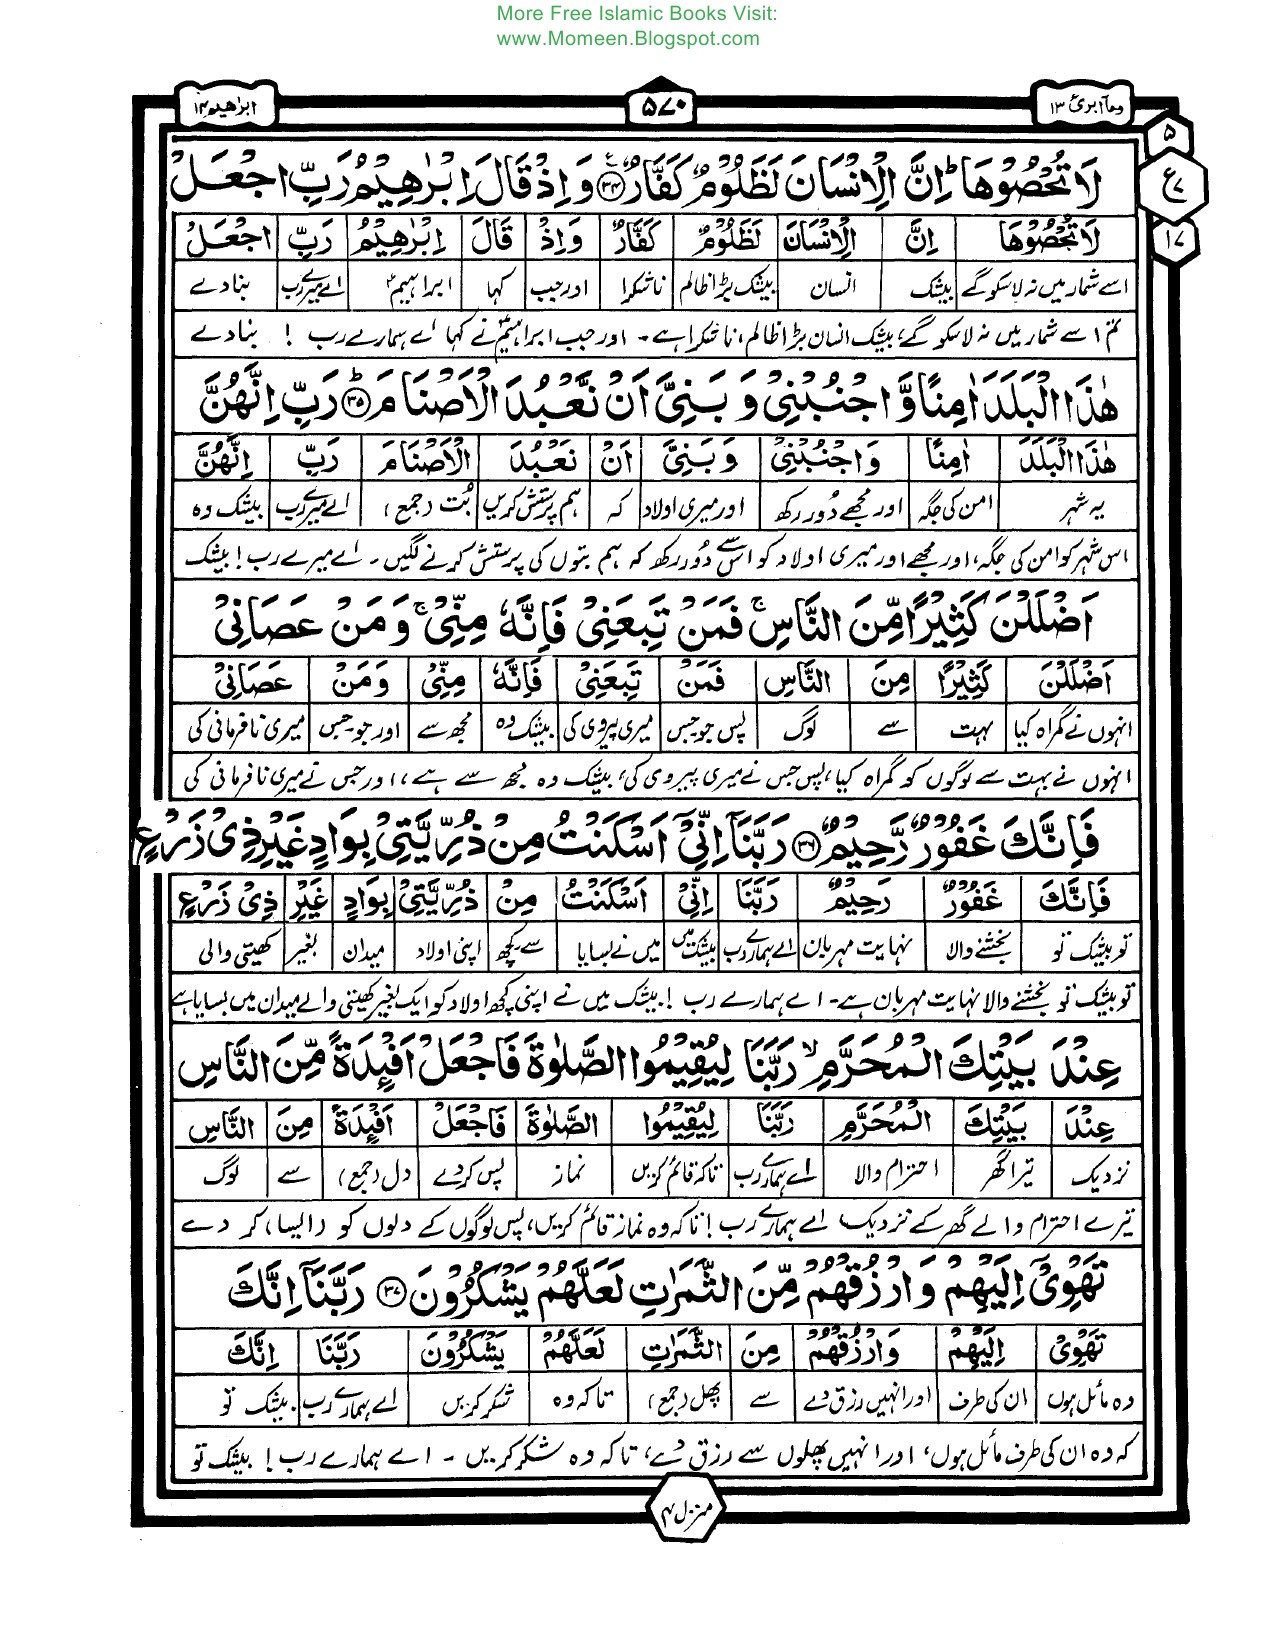 More Free Islamic Books Visit:
www.Momeen.Blogspot.com
ومآ ابرئ ۱۳ ۵۷۰ ابراهيم ۱۴
۵
ع ۷
۱۷
لَا تُحْصُوْهَا ؕ اِنَّ الْاِنْسَانَ لَظَلُوْمٌ كَفَّارٌ ۳۴ وَاِذْ قَالَ اِبْرٰهِيْمُ رَبِّ اجْعَلْ
لَا تُحْصُوْهَا اِنَّ الْاِنْسَانَ لَظَلُوْمٌ كَفَّارٌ وَاِذْ قَالَ اِبْرٰهِيْمُ رَبِّ اجْعَلْ
اسے شمار میں نہ لا سکو گے بیشک انسان بیشک بڑا ظالم ناشکرا اور جب کہا ابراہیمؑ اے میرے رب بنا دے
تم اسے شمار میں نہ لا سکو گے، بیشک انسان بڑا ظالم، ناشکرا ہے۔ اور جب ابراہیمؑ نے کہا اے ہمارے رب ! بنا دے
هٰذَا الْبَلَدَ اٰمِنًا وَّاجْنُبْنِيْ وَبَنِيَّ اَنْ نَّعْبُدَ الْاَصْنَامَ ؕ ۳۵ رَبِّ اِنَّهُنَّ
هٰذَا الْبَلَدَ اٰمِنًا وَاجْنُبْنِيْ وَبَنِيَّ اَنْ نَعْبُدَ الْاَصْنَامَ رَبِّ اِنَّهُنَّ
یہ شہر امن کی جگہ اور مجھے دُور رکھ اور میری اولاد کہ ہم پرستش کریں بُت (جمع) اے میرے رب بیشک وہ
اس شہر کو امن کی جگہ، اور مجھے اور میری اولاد کو اس سے دُور رکھ کہ ہم بتوں کی پرستش کرنے لگیں۔ اے میرے رب! بیشک
اَضْلَلْنَ كَثِيْرًا مِّنَ النَّاسِ ۚ فَمَنْ تَبِعَنِيْ فَاِنَّهٗ مِنِّيْ ۚ وَمَنْ عَصَانِيْ
اَضْلَلْنَ كَثِيْرًا مِنَ النَّاسِ فَمَنْ تَبِعَنِيْ فَاِنَّهٗ مِنِّيْ وَمَنْ عَصَانِيْ
انہوں نے گمراہ کیا بہت سے لوگ پس جو جس میری پیروی کی بیشک وہ مجھ سے اور جو جس میری نافرمانی کی
انہوں نے بہت سے لوگوں کو گمراہ کیا، پس جس نے میری پیروی کی، بیشک وہ مجھ سے ہے، اور جس نے میری نافرمانی کی
فَاِنَّكَ غَفُوْرٌ رَّحِيْمٌ ۳۶ رَبَّنَآ اِنِّيْٓ اَسْكَنْتُ مِنْ ذُرِّيَّتِيْ بِوَادٍ غَيْرِ ذِيْ زَرْعٍ
فَاِنَّكَ غَفُوْرٌ رَحِيْمٌ رَبَّنَا اِنِّيْ اَسْكَنْتُ مِنْ ذُرِّيَّتِيْ بِوَادٍ غَيْرِ ذِيْ زَرْعٍ
تو بیشک تو بخشنے والا نہایت مہربان اے ہمارے رب بیشک میں میں نے بسایا سے کچھ اپنی اولاد میدان بغیر کھیتی والی
تو بیشک تو بخشنے والا نہایت مہربان ہے۔ اے ہمارے رب! بیشک میں نے اپنی کچھ اولاد کو ایک بغیر کھیتی والے میدان میں بسایا ہے
عِنْدَ بَيْتِكَ الْمُحَرَّمِ ۙ رَبَّنَا لِيُقِيْمُوا الصَّلٰوةَ فَاجْعَلْ اَفْئِدَةً مِّنَ النَّاسِ
عِنْدَ بَيْتِكَ الْمُحَرَّمِ رَبَّنَا لِيُقِيْمُوا الصَّلٰوةَ فَاجْعَلْ اَفْئِدَةً مِنَ النَّاسِ
نزدیک تیرا گھر احترام والا اے ہمارے رب تاکہ قائم کریں نماز پس کر دے دل (جمع) سے لوگ
تیرے احترام والے گھر کے نزدیک اے ہمارے رب! تاکہ وہ نماز قائم کریں، پس لوگوں کے دلوں کو (ایسا) کر دے
تَهْوِيْٓ اِلَيْهِمْ وَارْزُقْهُمْ مِّنَ الثَّمَرٰتِ لَعَلَّهُمْ يَشْكُرُوْنَ ۳۷ رَبَّنَآ اِنَّكَ
تَهْوِيْ اِلَيْهِمْ وَارْزُقْهُمْ مِنَ الثَّمَرٰتِ لَعَلَّهُمْ يَشْكُرُوْنَ رَبَّنَا اِنَّكَ
وہ مائل ہوں ان کی طرف اور انہیں رزق دے سے پھل (جمع) تاکہ وہ شکر کریں اے ہمارے رب بیشک تو
کہ وہ ان کی طرف مائل ہوں، اور انہیں پھلوں سے رزق دے، تاکہ وہ شکر کریں۔ اے ہمارے رب! بیشک تو
منزل ۳